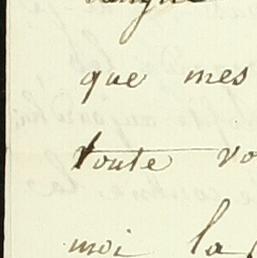 que mes
toute vo
moi la